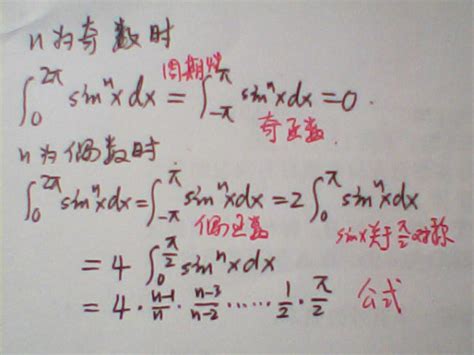 n为奇数时
∫₀^{2π} sinⁿx dx 周期性= ∫_{-π}^{π} sinⁿx dx = 0.
奇函数
n为偶数时
∫₀^{2π} sinⁿx dx = ∫_{-π}^{π} sinⁿx dx = 2∫₀^{π} sinⁿx dx
偶函数 sinx关于π/2对称
= 4 ∫₀^{π/2} sinⁿx dx
= 4 · (n-1)/n · (n-3)/(n-2) ⋯⋯ 1/2 · π/2 公式